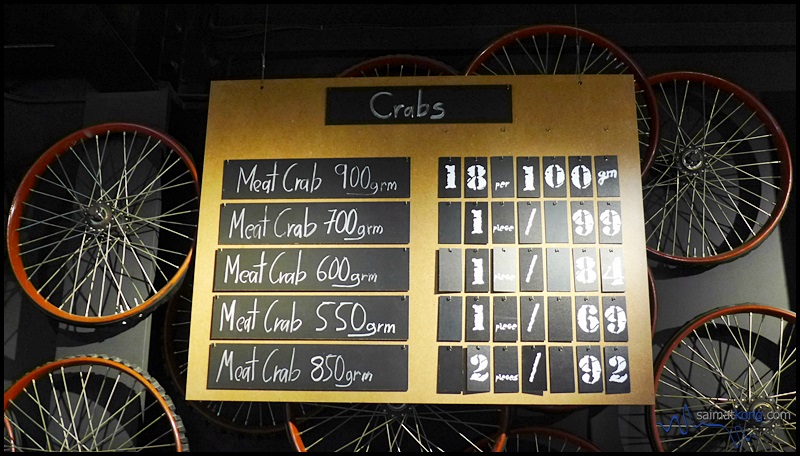 Crabs
Meat Crab 900grm 18 per 100 gm
Meat Crab 700grm 1 piece / 99
Meat Crab 600grm 1 piece / 84
Meat Crab 550grm 1 piece / 69
Meat Crab 850grm 2 pieces / 92
saimatkong.com